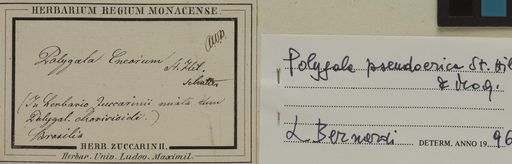 HERBARIUM REGIUM MONACENSE.
Polygala Cneorum
St. Hil.
(In herbario Zuccarinii mixta cum
Polygal.
Brasilia
HERB. ZUCCARINII.
Herbar. Univ. Ludov. Maximil.
Polygala pseudoerica St. Hil
& Moq.
L. Bernardi DETERM. ANNO 1996